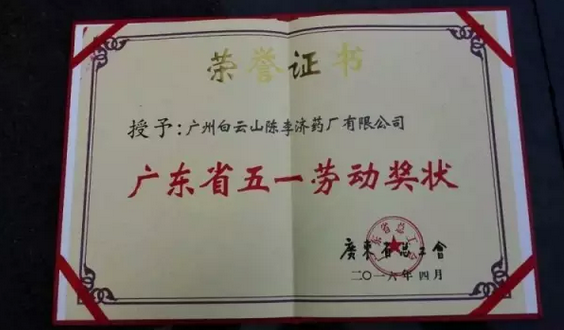 荣誉证书
授予：广州白云山陈李济药厂有限公司
广东省五一劳动奖状
廣東省总工會
二〇一六年四月